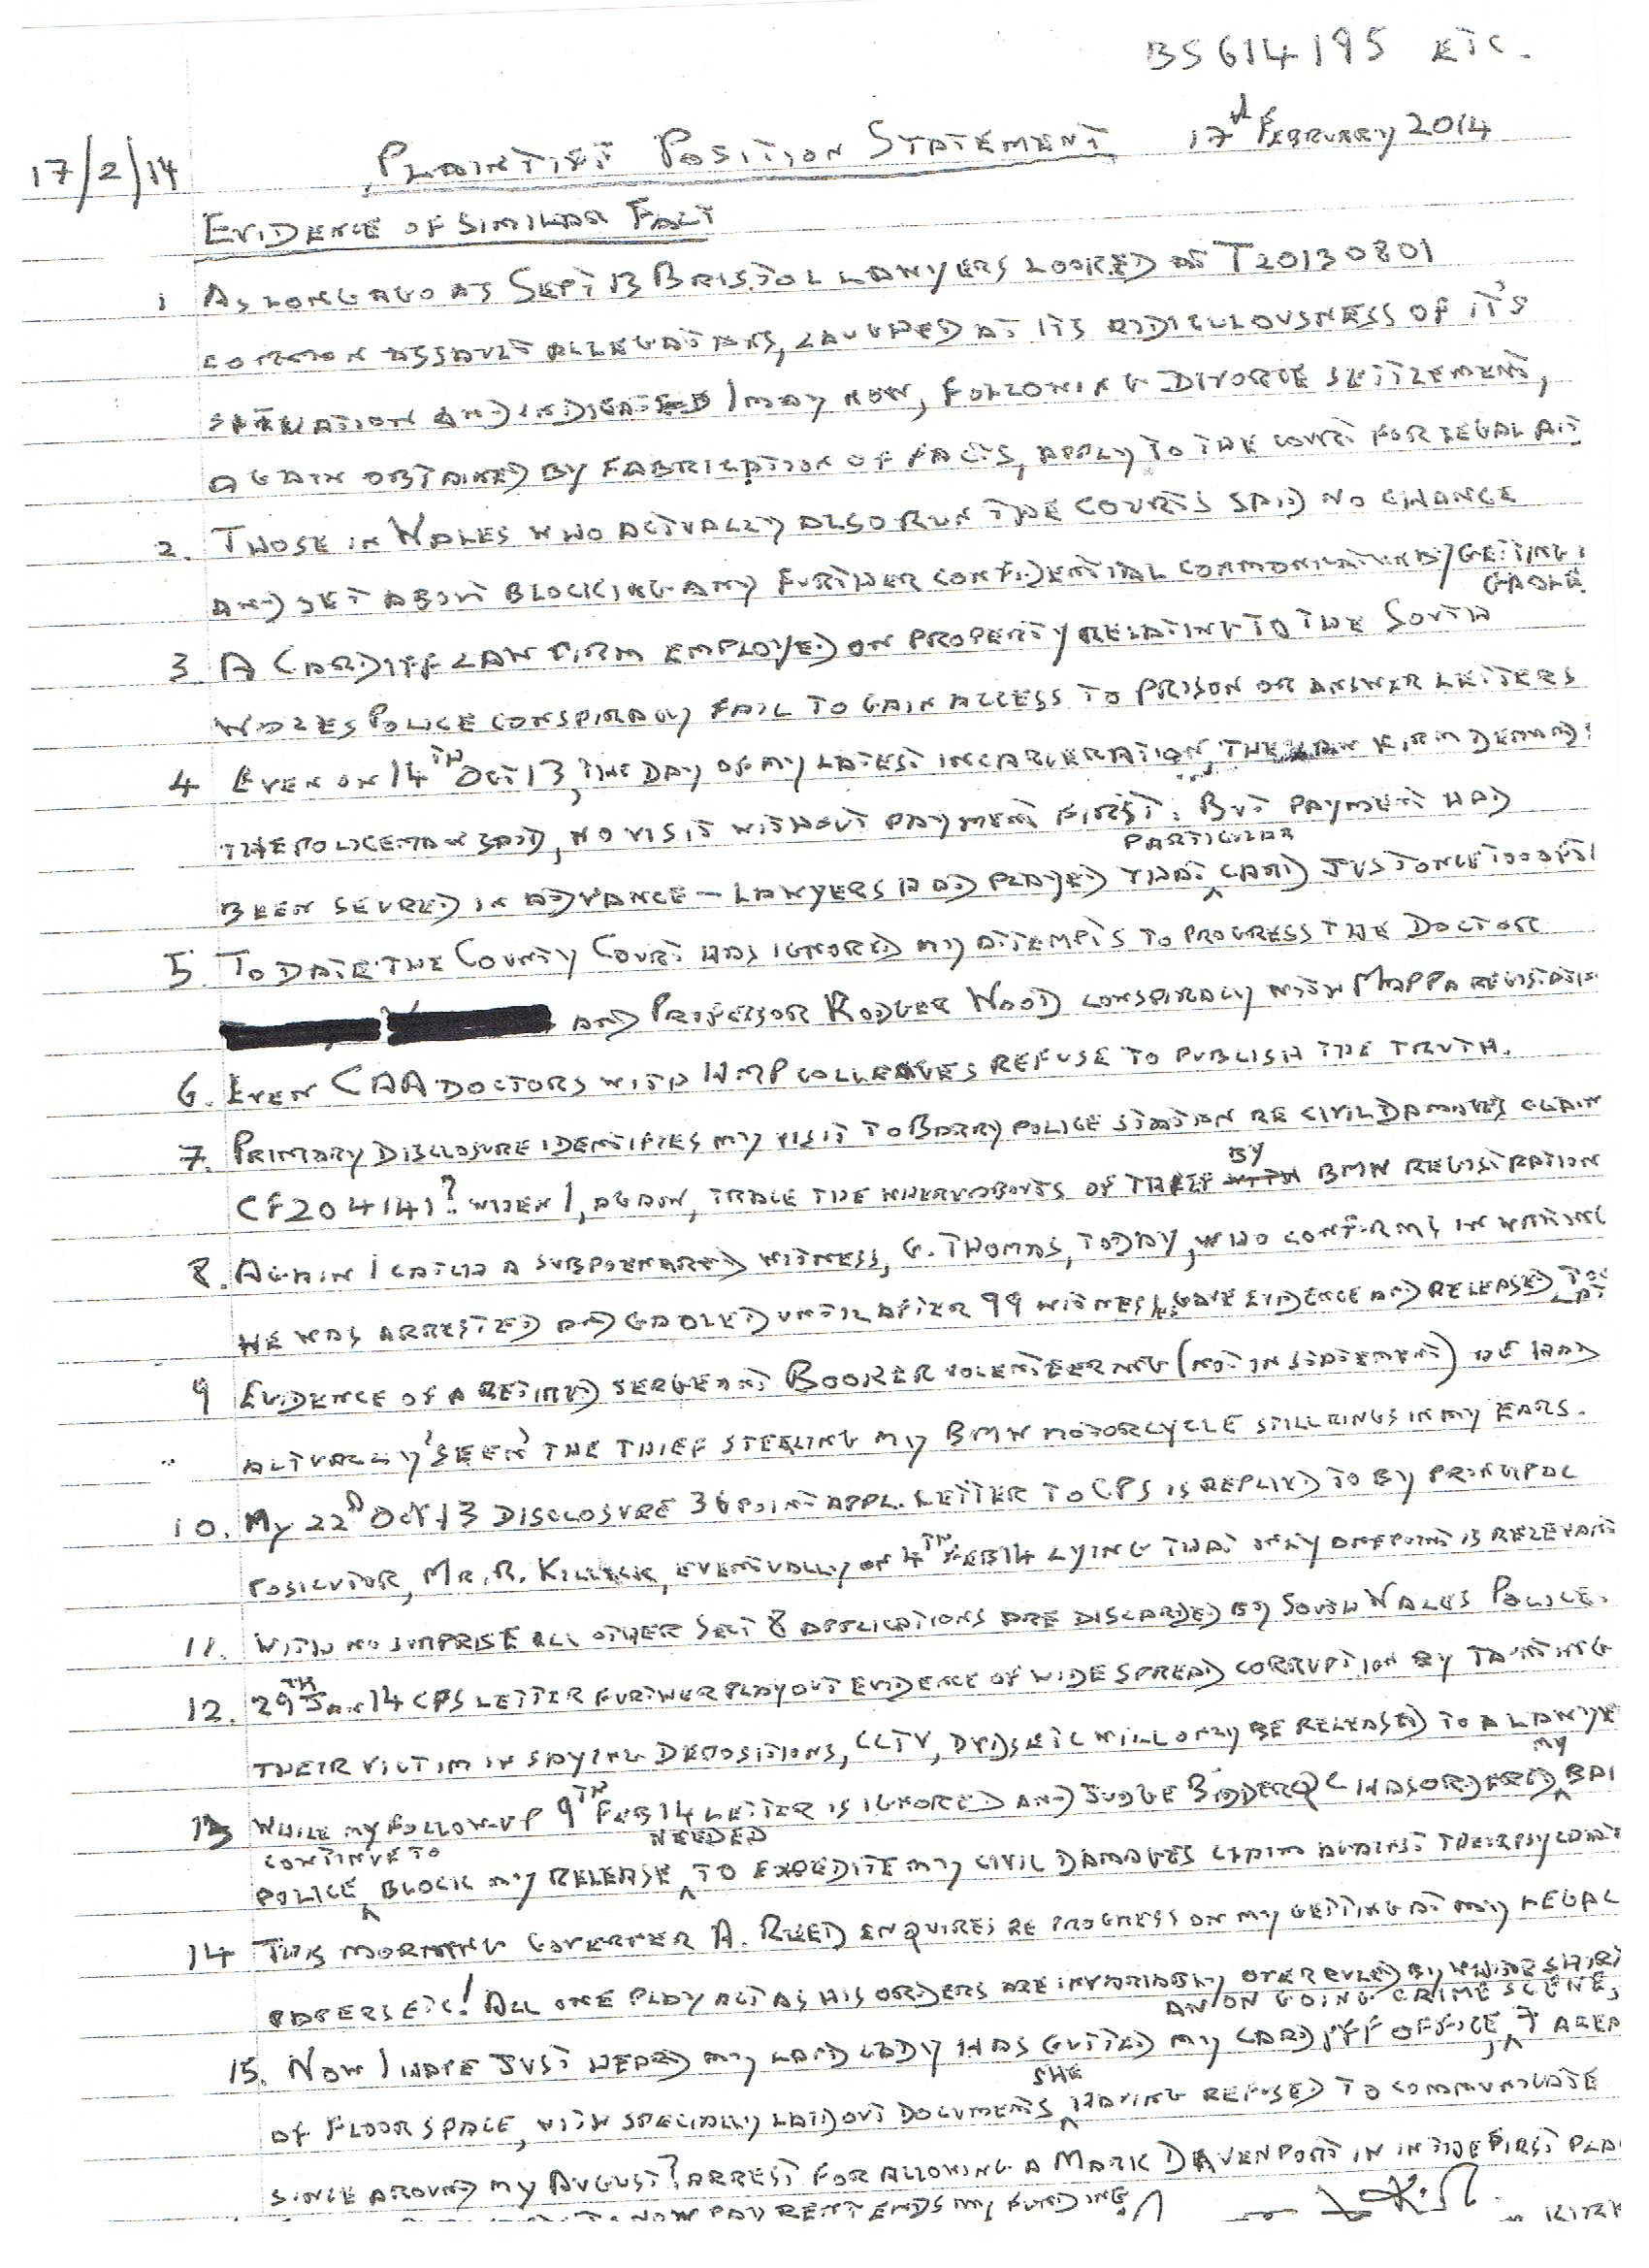 BS614195 ETC.
17/2/14 PLAINTIFF POSITION STATEMENT 17th FEBRUARY 2014
EVIDENCE OF SIMILAR FACT
1 AS LONG AGO AS SEPT 13 BRISTOL LAWYERS LOOKED AT T20130801
COMMON ASSAULT ALLEGATIONS, LAUGHED AT ITS RIDICULOUSNESS OF IT'S
SITUATION AND INDICATED I MAY NOW, FOLLOWING DIVORCE SETTLEMENT,
AGAIN OBTAINED BY FABRICATION OF FACTS, APPLY TO THE COURT FOR LEGAL AID
2. THOSE IN WALES WHO ACTUALLY ALSO RUN THE COURTS SAID NO CHANCE
AND SET ABOUT BLOCKING ANY FURTHER CONFIDENTIAL COMMUNICATION BY GETTING
GAOLED.
3. A CARDIFF LAW FIRM EMPLOYED ON PROPERTY RELATING TO THE SOUTH
WALES POLICE CONSPIRACY FAIL TO GAIN ACCESS TO PRISON OR ANSWER LETTERS
4 EVEN ON 14TH OCT 13, THE DAY OF MY LATEST INCARCERATION, THE LAW FIRM DEMAND
THE POLICEMAN SAID, NO VISIT WITHOUT PAYMENT FIRST. BUT PAYMENT HAD
BEEN SEVRED IN ADVANCE - LAWYERS HAD PLAYED THAT PARTICULAR CARD JUST ONCE TOO OFT
5. TO DATE THE COUNTY COURT HAS IGNORED MY ATTEMPTS TO PROGRESS THE DOCTOR
AND PROFESSOR RODGER WOOD CONSPIRACY WITH MAPPA REGISTRATION
6. EVEN CAA DOCTORS WITH HMP COLLEAGUES REFUSE TO PUBLISH THE TRUTH.
7. PRIMARY DISCLOSURE IDENTIFIES MY VISIT TO BARRY POLICE STATION RE CIVIL DAMAGES CLAIM
CF204141? WHEN I, AGAIN, TRACE THE WHEREABOUTS OF THIEF BY BMW REGISTRATION
8. AGAIN I CATCH A SUBPOENARED WITNESS, G. THOMAS, TODAY, WHO CONFIRMS IN WRITING
HE WAS ARRESTED AND GAOLED UNTIL AFTER 99 WITNESSES GAVE EVIDENCE AND RELEASED TOO LATE
9 EVIDENCE OF A RETIRED SERGEANT BOOKER VOLENTEERING (NOT IN STATEMENT) HE HAD
ACTUALLY 'SEEN' THE THIEF STEALING MY BMW MOTORCYCLE STILL RINGS IN MY EARS.
10. MY 22nd OCT 13 DISCLOSURE 36 POINT APPL. LETTER TO CPS IS REPLIED TO BY PRINCIPAL
POSICUTOR, MR. R. KILLICK, EVENTUALLY ON 4TH FEB 14 LYING THAT ONLY ONE POINT IS RELEVANT
11. WITH NO SURPRISE ALL OTHER SECT 8 APPLICATIONS ARE DISCARDED BY SOUTH WALES POLICE.
12. 29TH JAN 14 CPS LETTER FURTHER PLAY OUT EVIDENCE OF WIDESPREAD CORRUPTION BY TAUNTING
THEIR VICTIM IN SAYING DEPOSITIONS, CCTV, DVDS ETC WILL ONLY BE RELEASED TO A LAWYE
13 WHILE MY FOLLOW-UP 9TH FEB 14 LETTER IS IGNORED AND JUDGE BIDDER QC HAS ORDERED MY BAI
POLICE CONTINUE TO BLOCK MY RELEASE NEEDED TO EXPEDITE MY CIVIL DAMAGES CLAIM AGAINST THEIR
14 THIS MORNING GOVERNER A. REED ENQUIRES RE PROGRESS ON MY GETTING AT MY LEGAL
PAPERS ETC! ALL ONE PLAY ACT AS HIS ORDERS ARE INVARIABLY OVERRULED BY WHITE SHIRT
15. NOW I HAVE JUST HEARD MY LAND LADY HAS GUTTED MY CARDIFF OFFICE, AN ON GOING CRIME SCENE, 7 AREA
OF FLOOR SPACE, WITH SPECIALLY LAID OUT DOCUMENTS SHE HAVING REFUSED TO COMMUNICATE
SINCE AROUND MY AUGUST? ARREST FOR ALLOWING A MARK DAVENPORT IN IN THE FIRST PLA
NOW PAY RENT ENDS MY FUNDING!
KIRK